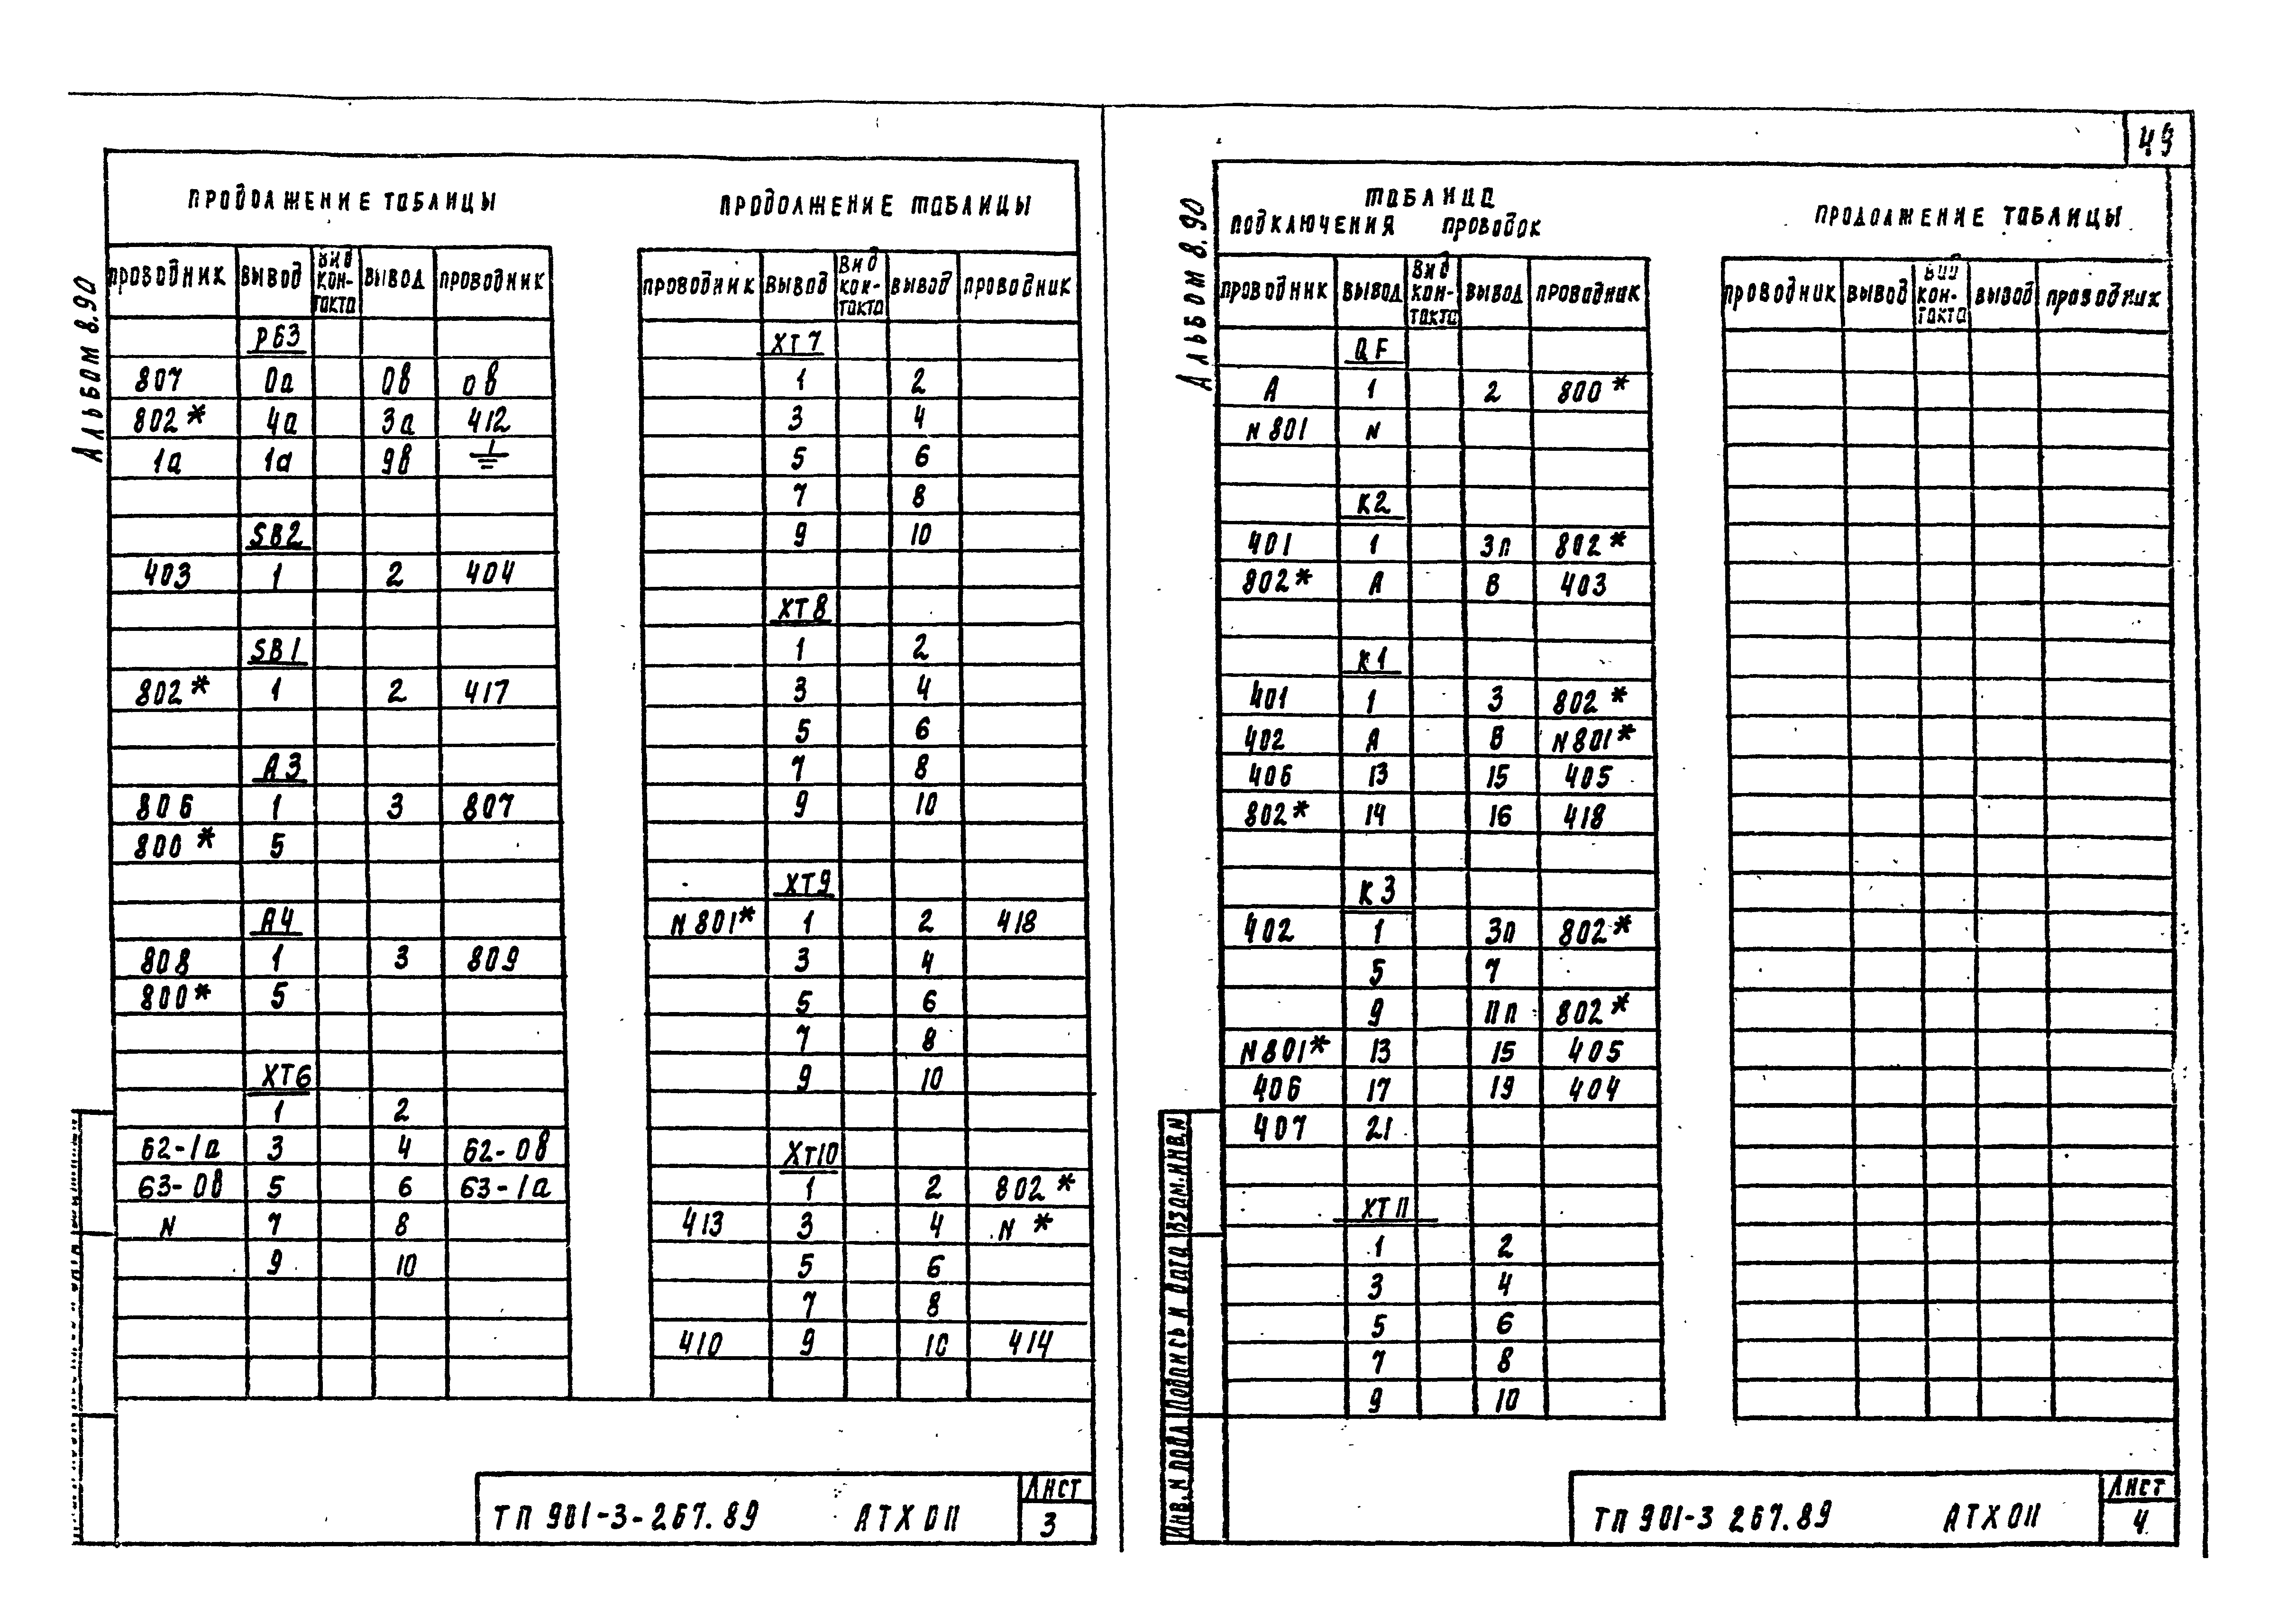 49
Альбом 8.90
Продолжение таблицы
Проводник Вывод Вид кон-такта Вывод Проводник
Р63
807 0а 0в 0в
802* 4а 3а 412
1а 1а 9в ⏚
SB2
403 1 2 404
SB1
802* 1 2 417
А3
806 1 3 807
800* 5
А4
808 1 3 809
800* 5
ХТ6
1 2
62-1а 3 4 62-0в
63-0в 5 6 63-1а
N 7 8
9 10
Продолжение таблицы
Проводник Вывод Вид кон-такта Вывод Проводник
ХТ7
1 2
3 4
5 6
7 8
9 10
ХТ8
1 2
3 4
5 6
7 8
9 10
ХТ9
N801* 1 2 418
3 4
5 6
7 8
9 10
ХТ10
1 2 802*
413 3 4 N*
5 6
7 8
410 9 10 414
ТП 901-3-267.89 АТХ 0П
Лист
3
Альбом 8.90
Таблица
подключения проводок
Проводник Вывод Вид кон-такта Вывод Проводник
QF
А 1 2 800*
N801 N
К2
401 1 3п 802*
802* А В 403
К1
401 1 3 802*
402 А В N801*
406 13 15 405
802* 14 16 418
К3
402 1 3п 802*
5 7
9 11п 802*
N801* 13 15 405
406 17 19 404
407 21
ХТ11
1 2
3 4
5 6
7 8
9 10
Продолжение таблицы
Проводник Вывод Вид кон-такта Вывод Проводник
Инв.N подл Подпись и дата Взам.инв.N
ТП 901-3 267.89 АТХ 0П
Лист
4